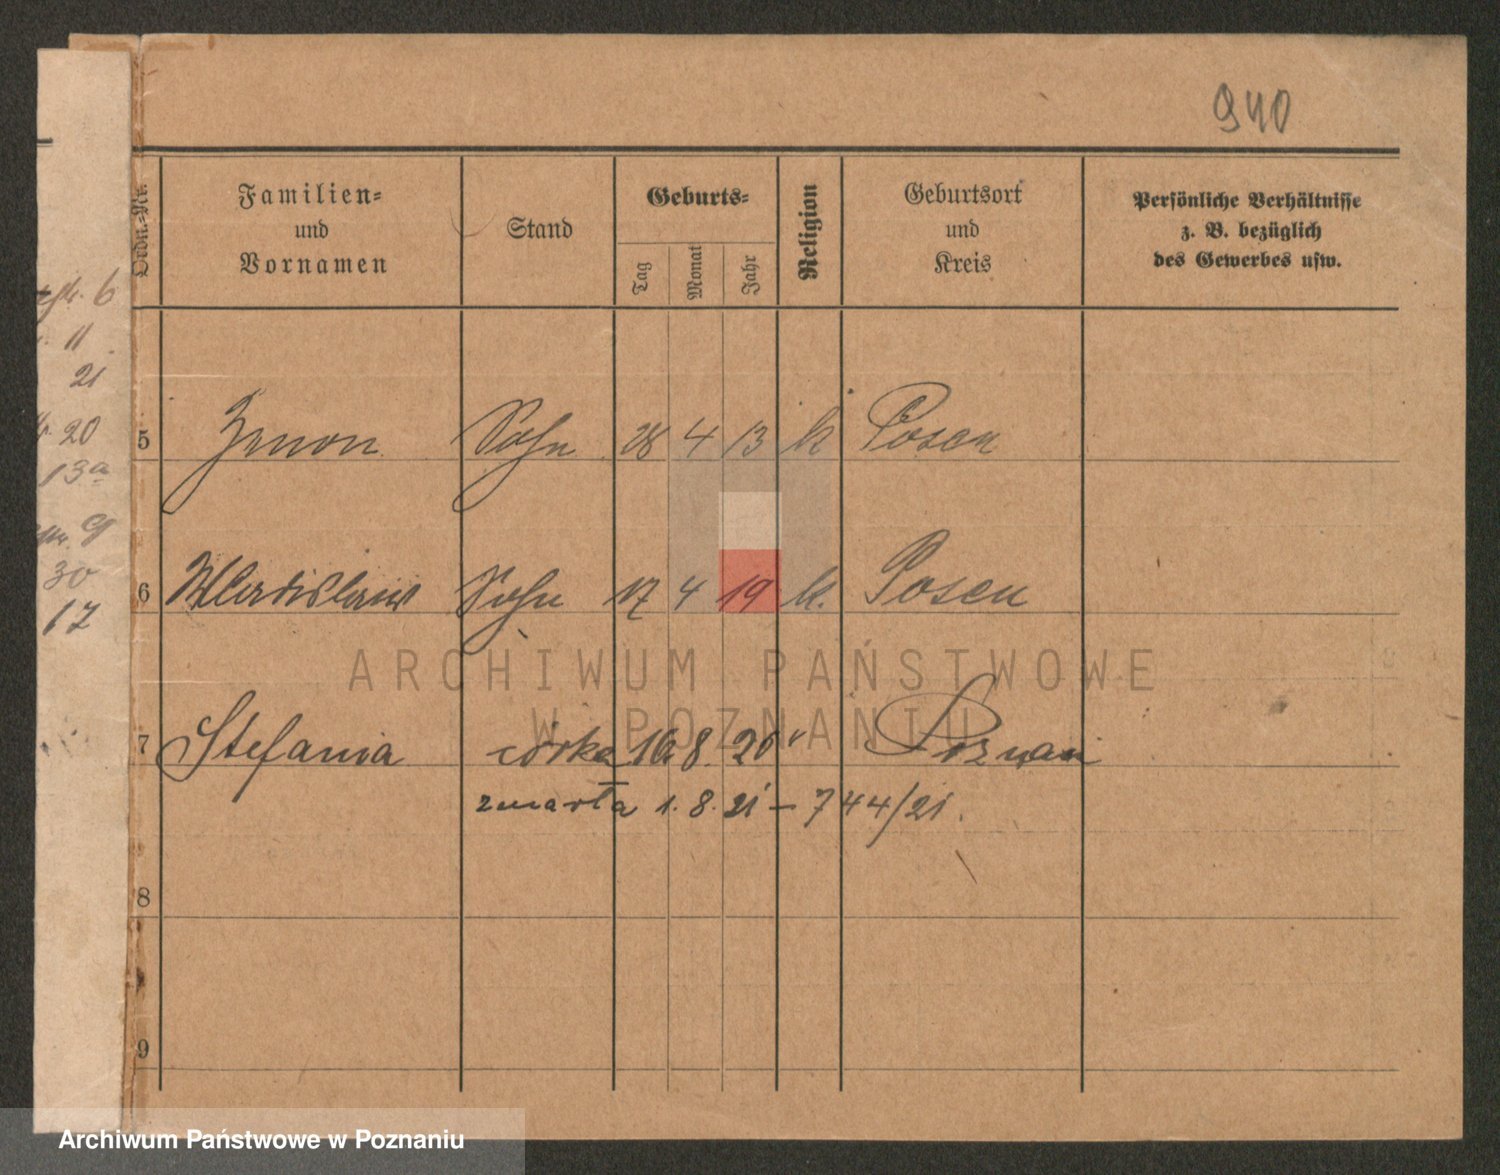 940
Ordn.-Nr.
Familien-
und
Vornamen
Stand
Geburts-
Tag
Monat
Jahr
Religion
Geburtsort
und
Kreis
Persönliche Verhältnisse
z. B. bezüglich
des Gewerbes usw.
6
11
21
20
13a
9
30
17
5 Zenon Sohn 28 4 13 k Posen
6 Wladislaus Sohn 17 4 19 k. Posen
7 Stefania córka 16. 8. 20 " Poznań
zmarła 1. 8. 21 – 744/21.
8
9
ARCHIWUM PAŃSTWOWE
W POZNANIU
Archiwum Państwowe w Poznaniu